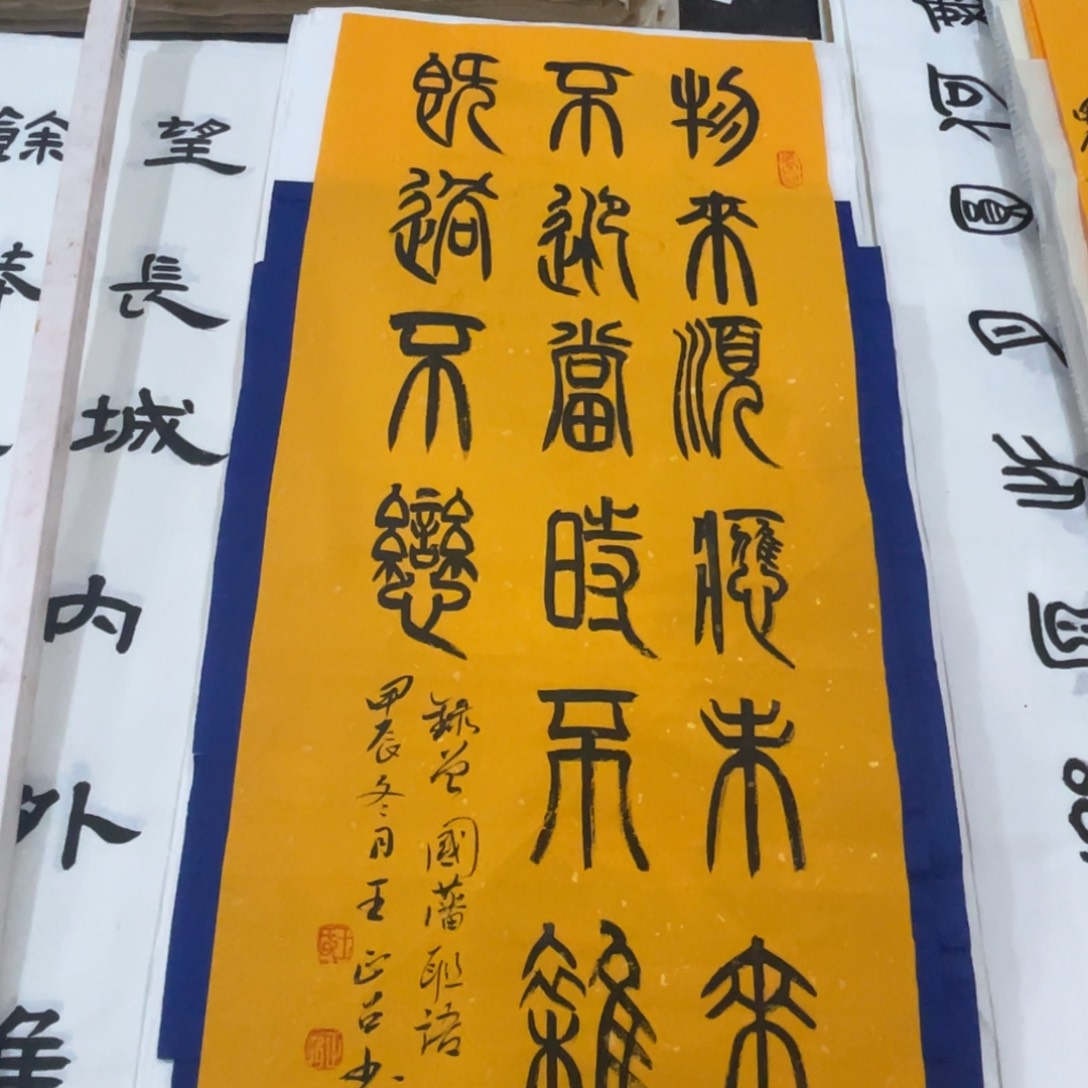 物來順應未來
不迎當時不雜
既過不戀
錄曾國藩聯語
甲辰冬月王正
望長城内外
餘